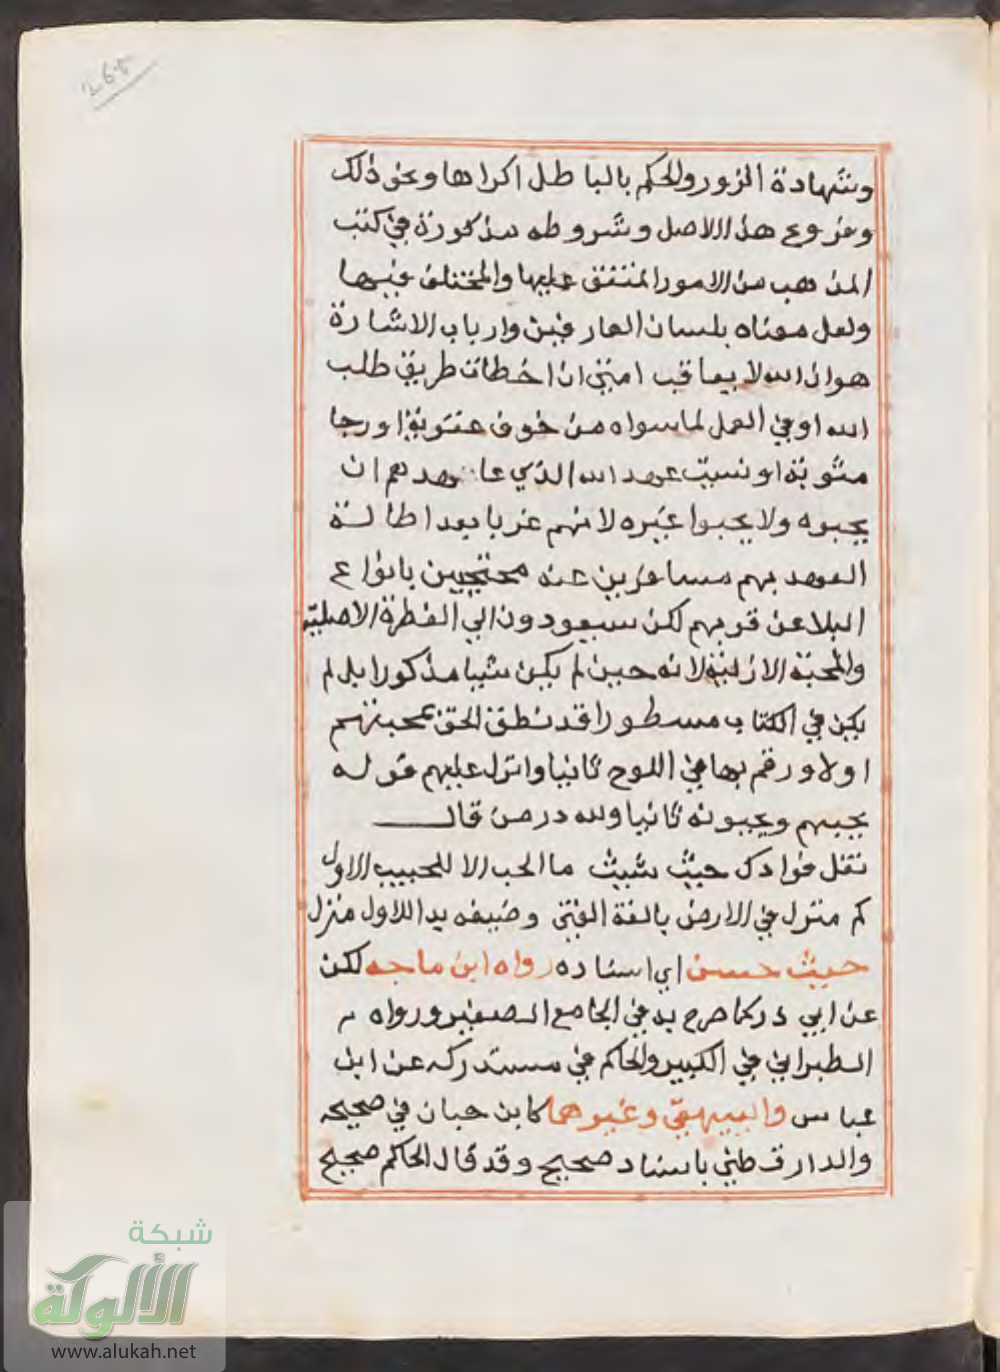 وشهادة الزور والحكم بالباطل اكراها ونحو ذلك
وفروع هذا الاصل وشروطه مذكورة في كتب
المذهب من الامور المتفق عليها والمختلف فيها
ولعل معناه بلسان العارفين وارباب الاشارة
هو ان الله لا يعاقب امتي ان اخطات طريق طلب
الله او في العمل لما سواه من خوف عقوبة او رجا
مثوبة او نسيت عهد الله الذي عاهدهم ان
يحبوه ولا يحبوا غيره لانهم غربا بعد اطالة
العهد بهم مسافرين عنه محتجبين بانواع
البلا عن قربهم لكن سيعودون الي الفطرة الاصلية
والمحبة الازلية لانه حين لم يكن شيا مذكورا بل لم
يكن في الكتاب مسطورا قد نطق الحق بمحبتهم
اولا ورقم بها في اللوح ثانيا وانزل عليهم قوله
يحبهم ويحبونه ثانيا ولله در من قال
نقل فوادك حيث شيت ما الحب الا للحبيب الاول
كم منزل في الارض يالفه الفتي وحنينه ابدا لاول منزل
حديث حسن اي اسناده رواه ابن ماجه لكن
عن ابي ذر كما صرح به في الجامع الصغير ورواه
الطبراني في الكبير والحاكم في مستدركه عن ابن
عباس والبيهقي وغيرهما كابن حبان في صحيحه
والدارقطني باسناد صحيح وقد قال الحاكم صحيح
شبكة
الألوكة
www.alukah.net